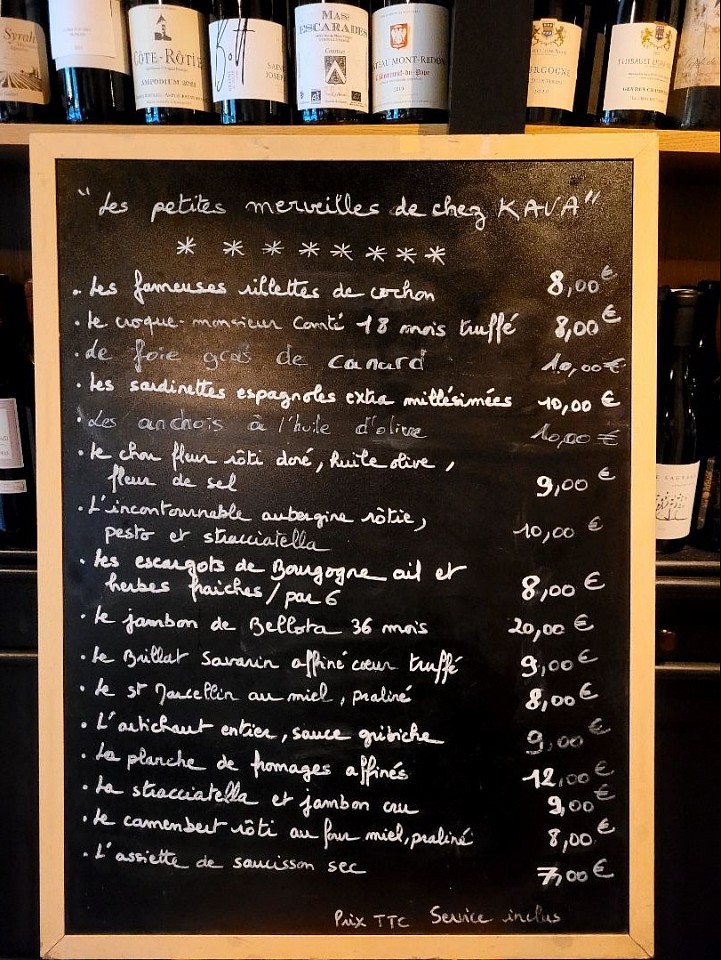 Syrah
CÔTE-RÔTIE
AMPODIUM 2021
Bott
MAS
ESCARABEL
CHÂTEAU MONT-REDON
Châteauneuf-du-Pape
"Les petites merveilles de chez KAVA"
* * * * * * *
. Les fameuses rillettes de cochon 8,00€
. Le croque-monsieur Comté 18 mois truffé 8,00€
. Le foie gras de canard 10,00€
. Les sardinettes espagnoles extra millésimées 10,00 €
. Les anchois à l'huile d'olive 10,00 €
. Le chou fleur rôti doré, huile olive,
fleur de sel 9,00 €
. L'incontournable aubergine rôtie,
pesto et stracciatella 10,00 €
. Les escargots de Bourgogne ail et
herbes fraiches / par 6 8,00 €
. Le jambon de Bellota 36 mois 20,00 €
. Le Brillat Savarin affiné cœur truffé 9,00 €
. Le st Marcellin au miel, praliné 8,00€
. L'artichaut entier, sauce gribiche 9,00 €
. La planche de fromages affinés 12,00 €
. La stracciatella et jambon cru 9,00 €
. Le camembert rôti au four miel, praliné 8,00 €
. L'assiette de saucisson sec 7,00 €
Prix TTC Service inclus